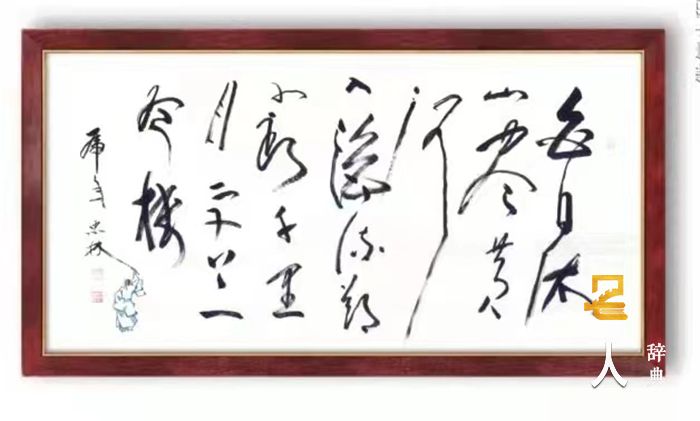 白日依
山尽黄
河
入海流欲
穷千里
目更上一
层楼
虎年 忠林
名人辞典